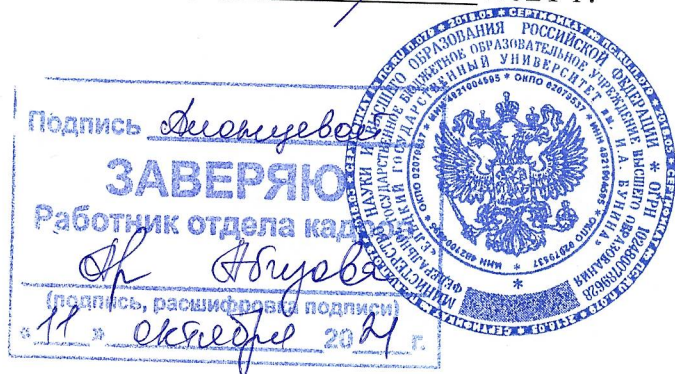 Подпись
ЗАВЕРЯЮ
Работник отдела кадров
(подпись, расшифровка подписи)
« 11 » октября 2021 г.
МИНИСТЕРСТВО НАУКИ И ВЫСШЕГО ОБРАЗОВАНИЯ РОССИЙСКОЙ ФЕДЕРАЦИИ * ОГРН 1024800789628
ФЕДЕРАЛЬНОЕ ГОСУДАРСТВЕННОЕ БЮДЖЕТНОЕ ОБРАЗОВАТЕЛЬНОЕ УЧРЕЖДЕНИЕ ВЫСШЕГО ОБРАЗОВАНИЯ
«ЕЛЕЦКИЙ ГОСУДАРСТВЕННЫЙ УНИВЕРСИТЕТ ИМ. И.А. БУНИНА»
* ИНН 4821004595 * ОКПО 02079537